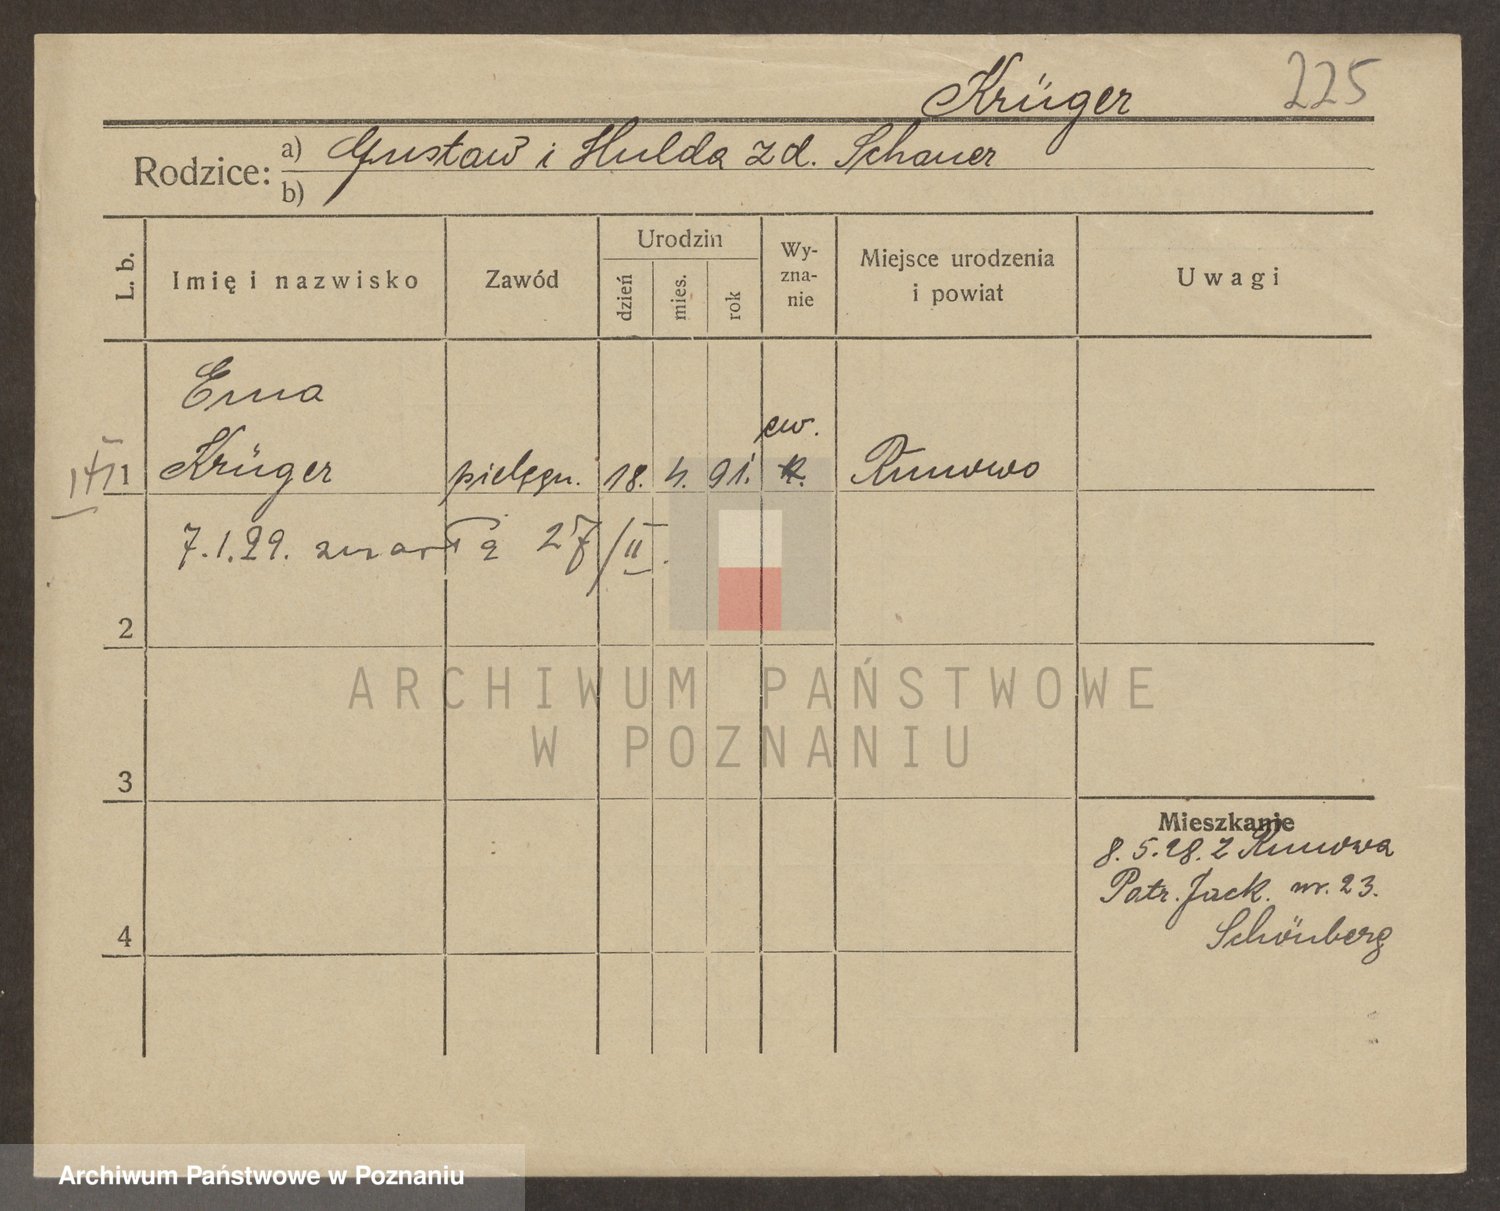 Krüger 225
Rodzice: a) Gustaw i Hulda zd. Schauer
b)
L. b.
Imię i nazwisko
Zawód
Urodzin
dzień
mies.
rok
Wy-
zna-
nie
Miejsce urodzenia
i powiat
Uwagi
Erna
ew.
1 Krüger pielęgn. 18. 4. 91. k. Runowo
7.1.29. zmarła 27/II.
2
3
4
Mieszkanie
8.5.28. z Runowa
Patr. Jack. nr. 23.
Schönberg
ARCHIWUM PAŃSTWOWE
W POZNANIU
Archiwum Państwowe w Poznaniu